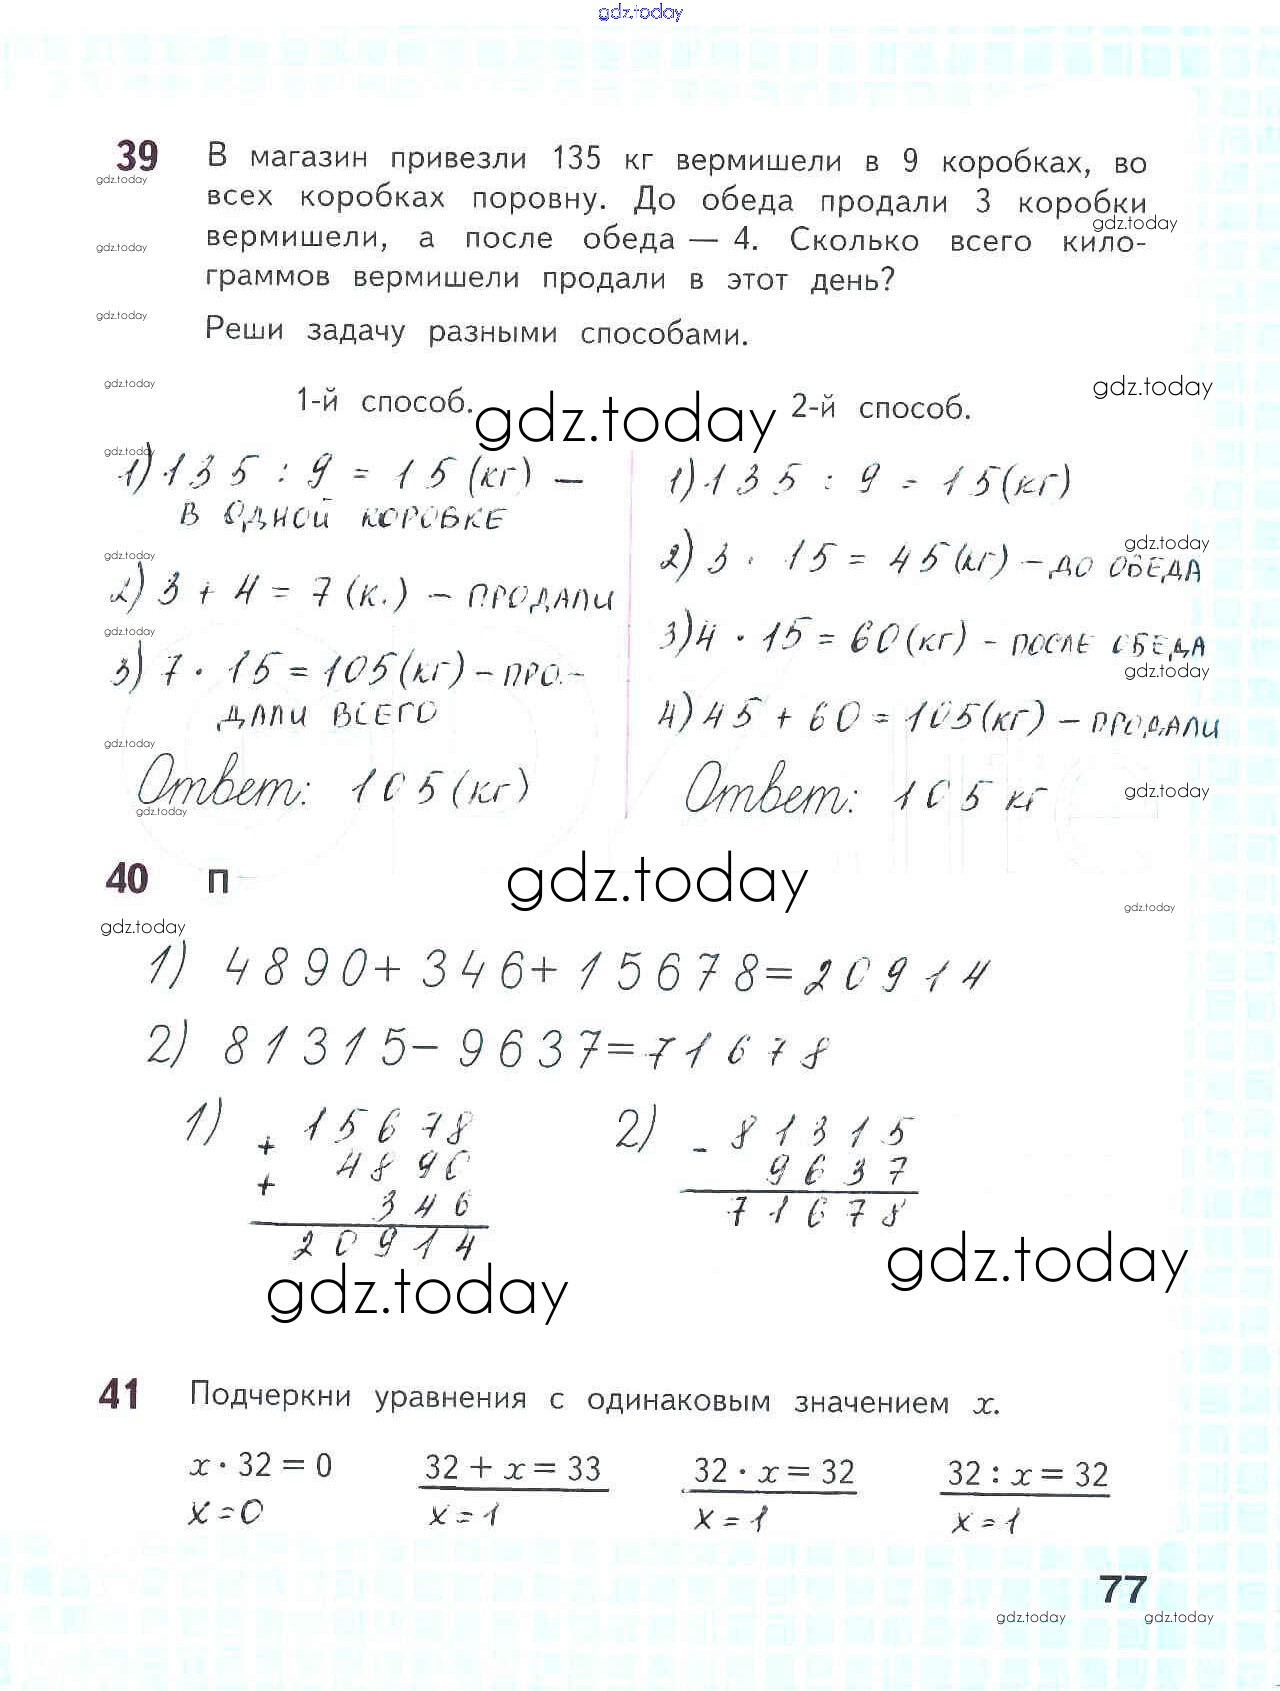 gdz.today
39 В магазин привезли 135 кг вермишели в 9 коробках, во
gdz.today
всех коробках поровну. До обеда продали 3 коробки
gdz.today
вермишели, а после обеда — 4. Сколько всего кило-
gdz.today
граммов вермишели продали в этот день?
gdz.today
Реши задачу разными способами.
gdz.today
gdz.today
1-й способ.
gdz.today
2-й способ.
gdz.today
1) 135 : 9 = 15 (кг) –
в одной коробке
gdz.today
2) 3 + 4 = 7 (к.) – продали
gdz.today
3) 7 · 15 = 105 (кг) – про-
дали всего
gdz.today
Ответ: 105 (кг)
gdz.today
1) 135 : 9 = 15 (кг)
gdz.today
2) 3 · 15 = 45 (кг) – до обеда
3) 4 · 15 = 60 (кг) – после обеда
gdz.today
4) 45 + 60 = 105 (кг) – продали
Ответ: 105 кг
gdz.today
40 П
gdz.today
gdz.today
gdz.today
1) 4890+346+15678=20914
2) 81315-9637=71678
1) + 15678
4890
+
346
20914
2) - 81315
9637
71678
gdz.today
gdz.today
41 Подчеркни уравнения с одинаковым значением x.
x · 32 = 0 32 + x = 33 32 · x = 32 32 : x = 32
x=0 x=1 x=1 x=1
77
gdz.today gdz.today